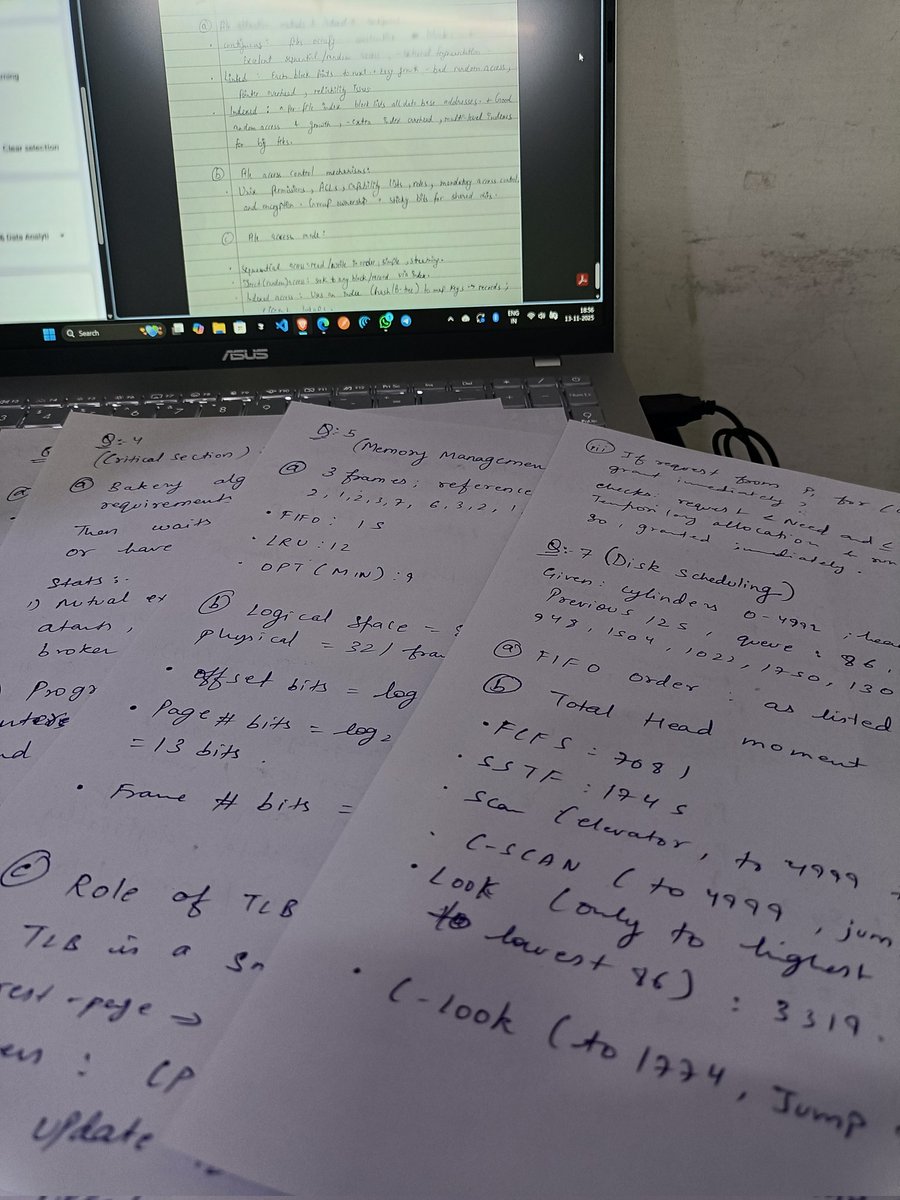 Clear selection
& Data Analyti
Contiguous :
Excellent sequential/random
Linked : Each block points to next + easy growth - bad random access,
Pointer overhead , reliability issues
Indexed : per file index block lists all data base addresses. + Good
random access & growth , - extra index overhead , multi-level indexes
for big files.
(b) access control mechanisms:
Unix Permissions , ACLs , Capability lists , roles , mandatory access control,
and encryption . Group ownership + sticky bits for shared
(c) access mode :
Sequential access : read/write in order, simple , streaming.
Direct (random) access : seek to any block/record via index.
Indexed access : Uses an index (hash/B-tree) to map keys → records ;
Search
ENG
IN
18:56
13-11-2025
ASUS
Q:- 4
(Critical Section)
(a) Bakery alg
requirements
Then waits
or have
Stats :-
1) Mutual ex
broker
Progr
Q:- 5
(Memory Managemen
(a) 3 frames ; reference
2, 1, 2, 3, 7, 6, 3, 2, 1
• FIFO : 15
• LRU : 12
• OPT (MIN) : 9
(b) Logical Space =
Physical = 32 / fra
• offset bits = log
• Page # bits = log2
= 13 bits .
• Frame # bits =
(c) Role of TLB
TLB is a
-page →
: CP
Update
(iii) If request from P1 for (
grant immediately ?
checks: request ≤ Need and ≤
Temporary allocation & run
so , granted immediately .
Q:- 7 (Disk Scheduling)
Given : cylinders 0-4999 ; hea
Previous 125 , queue : 86 ,
948 , 1504 , 1022 , 1750 , 130
(a) FIFO order : as listed
(b) Total Head moment
• FCFS : 7081
• SSTF : 1745
• Scan (elevator , to 4999
• C-SCAN ( to 4999 , jum
• Look (only to highest
to lowest 86) : 3319 .
• C-look (to 1774 , Jump